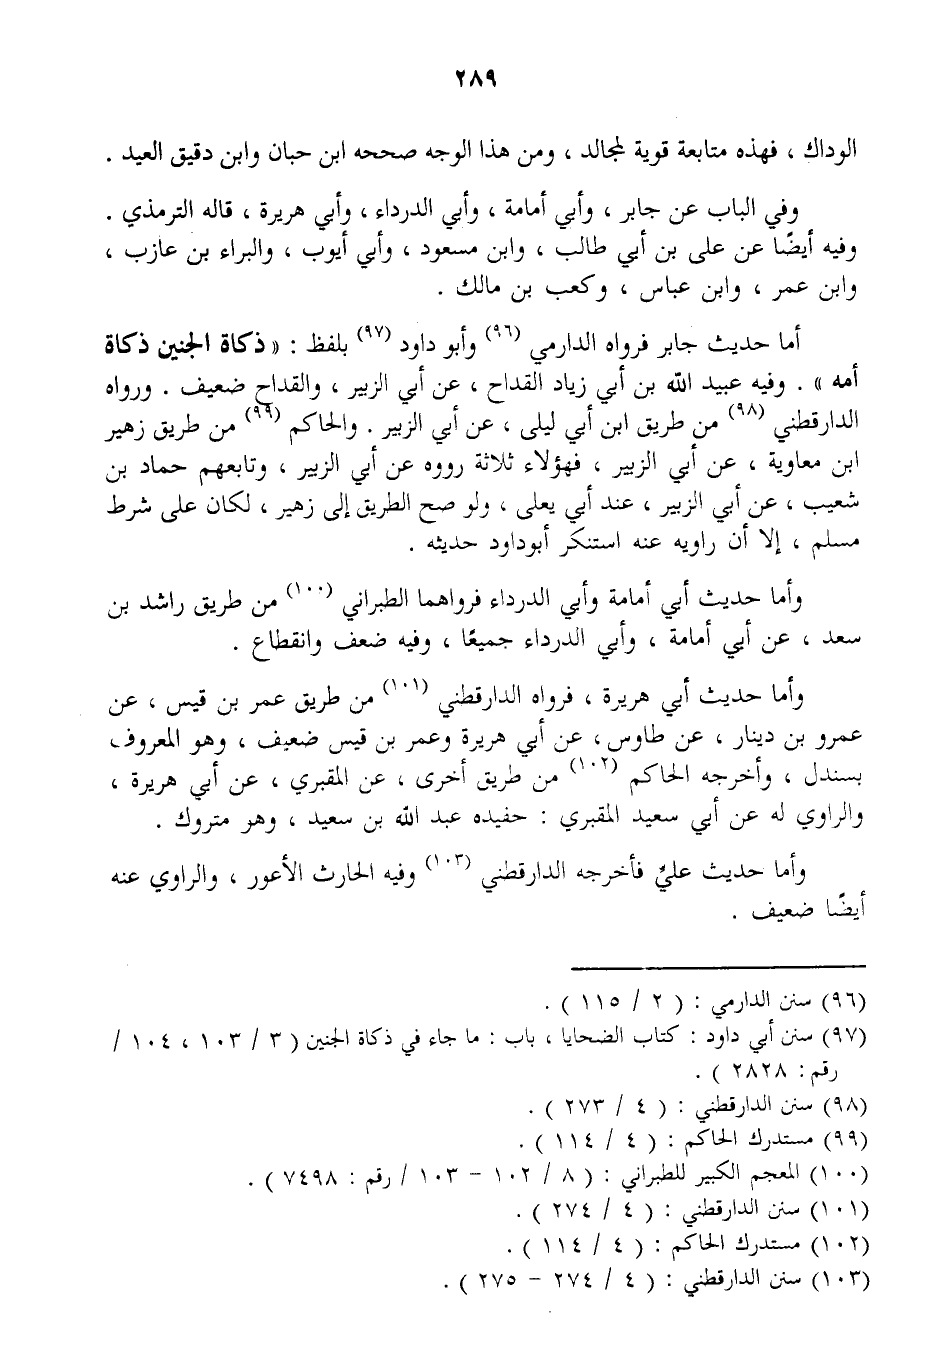 ٢٨٩
الوداك ، فهذه متابعة قوية لمجالد ، ومن هذا الوجه صححه ابن حبان وابن دقيق العيد .
وفي الباب عن جابر ، وأبي أمامة ، وأبي الدرداء ، وأبي هريرة ، قاله الترمذي .
وفيه أيضًا عن على بن أبي طالب ، وابن مسعود ، وأبي أيوب ، والبراء بن عازب ،
وابن عمر ، وابن عباس ، وكعب بن مالك .
أما حديث جابر فرواه الدارمي (٩٦) وأبو داود (٩٧) بلفظ : « ذكاة الجنين ذكاة
أمه » . وفيه عبيد الله بن أبي زياد القداح ، عن أبي الزبير ، والقداح ضعيف . ورواه
الدارقطني (٩٨) من طريق ابن أبي ليلى ، عن أبي الزبير . والحاكم (٩٩) من طريق زهير
ابن معاوية ، عن أبي الزبير ، فهؤلاء ثلاثة رووه عن أبي الزبير ، وتابعهم حماد بن
شعيب ، عن أبي الزبير ، عند أبي يعلى ، ولو صح الطريق إلى زهير ، لكان على شرط
مسلم ، إلا أن راويه عنه استنكر أبوداود حديثه .
وأما حديث أبي أمامة وأبي الدرداء فرواهما الطبراني (١٠٠) من طريق راشد بن
سعد ، عن أبي أمامة ، وأبي الدرداء جميعًا ، وفيه ضعف وانقطاع .
وأما حديث أبي هريرة ، فرواه الدارقطني (١٠١) من طريق عمر بن قيس ، عن
عمرو بن دينار ، عن طاوس ، عن أبي هريرة وعمر بن قيس ضعيف ، وهو المعروف
بسندل ، وأخرجه الحاكم (١٠٢) من طريق أخرى ، عن المقبري ، عن أبي هريرة ،
والراوي له عن أبي سعيد المقبري : حفيده عبد الله بن سعيد ، وهو متروك .
وأما حديث عليّ فأخرجه الدارقطني (١٠٣) وفيه الحارث الأعور ، والراوي عنه
أيضًا ضعيف .
(٩٦) سنن الدارمي : ( ٢ / ١١٥ ) .
(٩٧) سنن أبي داود : كتاب الضحايا ، باب : ما جاء في ذكاة الجنين ( ٣ / ١٠٣ ، ١٠٤ /
رقم : ٢٨٢٨ ) .
(٩٨) سنن الدارقطني : ( ٤ / ٢٧٣ ) .
(٩٩) مستدرك الحاكم : ( ٤ / ١١٤ ) .
(١٠٠) المعجم الكبير للطبراني : ( ٨ / ١٠٢ – ١٠٣ / رقم : ٧٤٩٨ ) .
(١٠١) سنن الدارقطني : ( ٤ / ٢٧٤ ) .
(١٠٢) مستدرك الحاكم : ( ٤ / ١١٤ ) .
(١٠٣) سنن الدارقطني : ( ٤ / ٢٧٤ – ٢٧٥ ) .